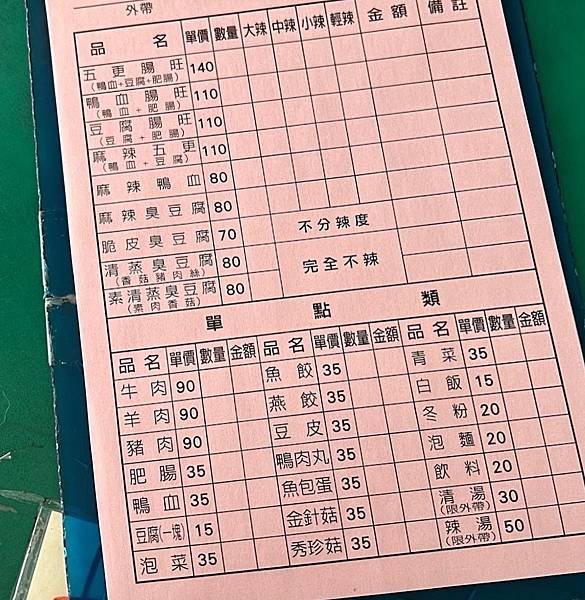 外帶
品名 單價 數量 大辣 中辣 小辣 輕辣 金額 備註
五更腸旺 140
(鴨血+豆腐+肥腸)
鴨血腸旺 110
(鴨血+肥腸)
豆腐腸旺 110
(豆腐+肥腸)
麻辣五更 110
(鴨血+豆腐)
麻辣鴨血 80
麻辣臭豆腐 80
脆皮臭豆腐 70 不分辣度
清蒸臭豆腐 80 完全不辣
(香菇豬肉絲)
素清蒸臭豆腐 80
(素肉香菇)
單點類
品名 單價 數量 金額 品名 單價 數量 金額 品名 單價 數量 金額
牛肉 90 魚餃 35 青菜 35
羊肉 90 燕餃 35 白飯 15
豬肉 90 豆皮 35 冬粉 20
肥腸 35 鴨肉丸 35 泡麵 20
鴨血 35 魚包蛋 35 飲料 20
豆腐(一塊) 15 金針菇 35 清湯 30
(限外帶)
泡菜 35 秀珍菇 35 辣湯 50
(限外帶)